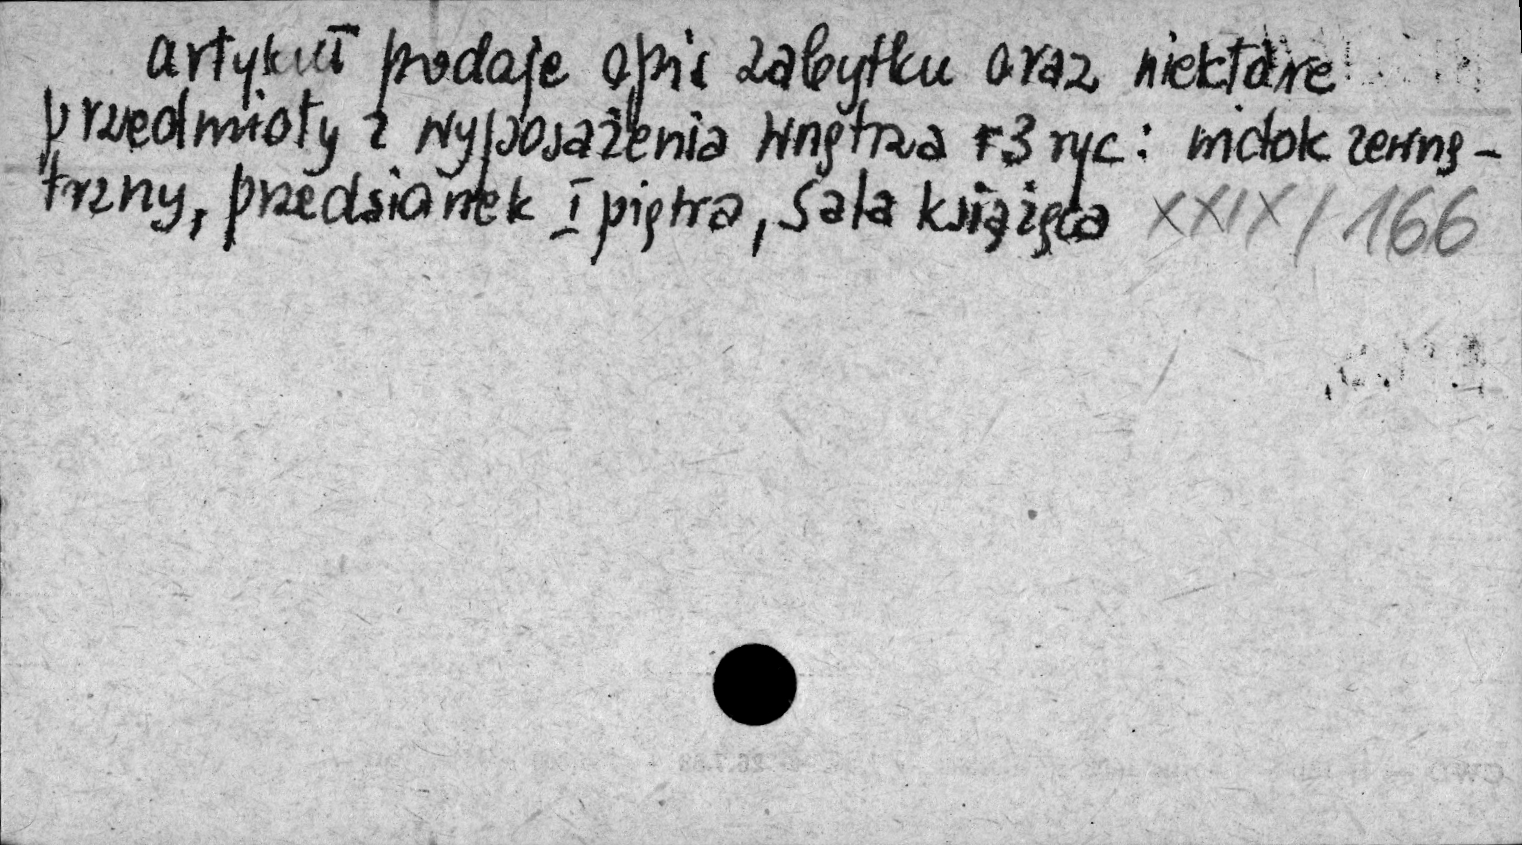 artykuł podaje opis zabytku oraz niektóre
przedmioty z wyposażenia wnętrza + 3 ryc: widok zewnę-
trzny, przedsionek I piętra, Sala książęca XXIX/166